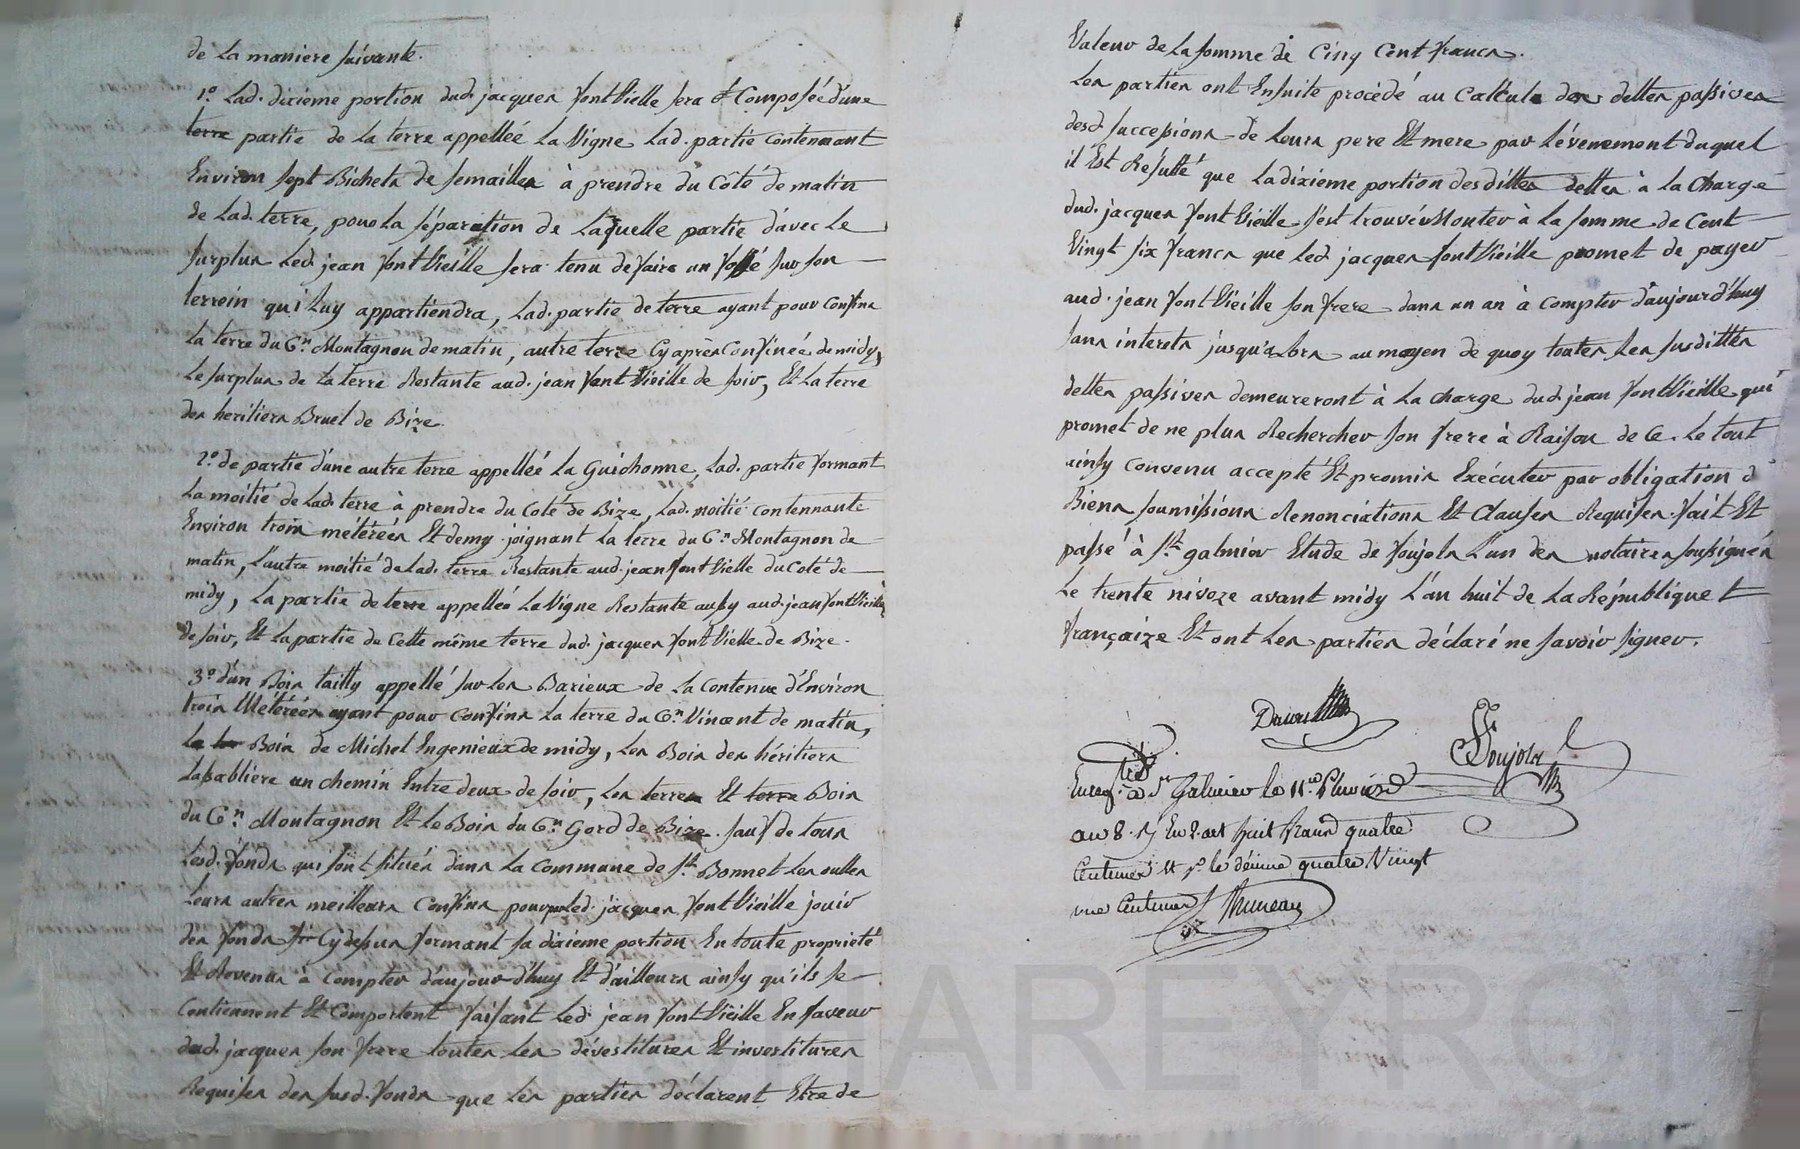 de la maniere suivante.
1.° Lad. dixieme portion dud. jacques font Vielle sera Composée d'une
terre partie de la terre appelleé la Vigne lad. partie contennant
Environ sept Bichets de semailles à prendre du Côté de matin
de lad. terre, pour la séparation de laquelle partie d'avec le
surplus led. jean font Vieille sera tenu de faire un fossé sur son
terrein qui luy appartiendra, lad. partie de terre ayant pour confins
la terre du C.n Montagnon de matin, autre terre Cy après Confinée de midy,
le surplus de la terre Restante aud. jean font Vieille de soir, Et la terre
des heritiers Bruel de Bize.
2.° de partie d'une autre terre appelleé la Guichonne, lad. partie formant
la moitié de lad. terre à prendre du Coté de Bize, lad. moitié contennante
Environ trois métèrées Et demy joignant la terre du C.n Montagnon de
matin, l'autre moitié de lad. terre Restante aud. jean font Vielle du Coté de
midy, la partie de terre appelleé la Vigne Restante aussy aud. jean font Vieille
de soir, Et la partie de Cette même terre dud. jacques font Vielle de Bize.
3.° d'un Bois tailly appellé sur les Barieux de la Contenue d'Environ
trois Métèrées ayant pour Confins la terre du C.n Vincent de matin,
Bois de Michel Ingenieux de midy, les Bois des héritiers
Lasabliere un chemin Entre deux de soir, les terres Et terre Bois
du C.n Montagnon Et le Bois du C.n Gord de Bize. sauf de tous
lesd. fonds qui sont situés dans la Commune de S.t Bonnet les oulles
leurs autres meilleurs Confins pour led. jacques font Vieille jouir
des fonds Cy dessus formant sa dixieme portion En toute proprieté
Et Revenus à compter d'aujourd'huy Et d'ailleurs ainsy qu'ils se
Contiennent Et Comportent faisant led. jean font Vieille En faveur
dud. jacques son frere toutes les dévestitures Et investitures
Requises des susd. fonds que les parties déclarent Etre de
Valeur de la somme de Cinq Cent francs.
Les parties ont Ensuite procédé au Calcule des dettes passives
desd. successions de leurs pere Et mere par l'évenement duquel
il Est Résulté que la dixieme portion desdittes dettes à la Charge
dud. jacques font Vieille s'est trouvée Monter à la somme de Cent
Vingt six francs que led. jacques font Vieille promet de payer
aud. jean font Vieille son frere dans un an à compter d'aujourd'huy
sans interets jusqu'alors au moyen de quoy toutes les susdittes
dettes passives demeureront à la charge dud. jean font Vieille qui
promet de ne plus Rechercher son frere à Raison de Ce. le tout
ainsy convenu accepté Et promis Exécuter par obligation de
Biens soumissions Renonciations Et Clauses Requises. fait Et
passé à S.t galmier Etude de foujols l'un des notaires soussignés
le trente nivoze avant midy l'an huit de la République
françaize Et ont les parties déclaré ne savoir signer.
Foujols
Enreg.é à S.t Galmier le 11.e Pluviose
an 8. huit francs quatre
Centimes le décime quatre Vingt
CHAREYRON